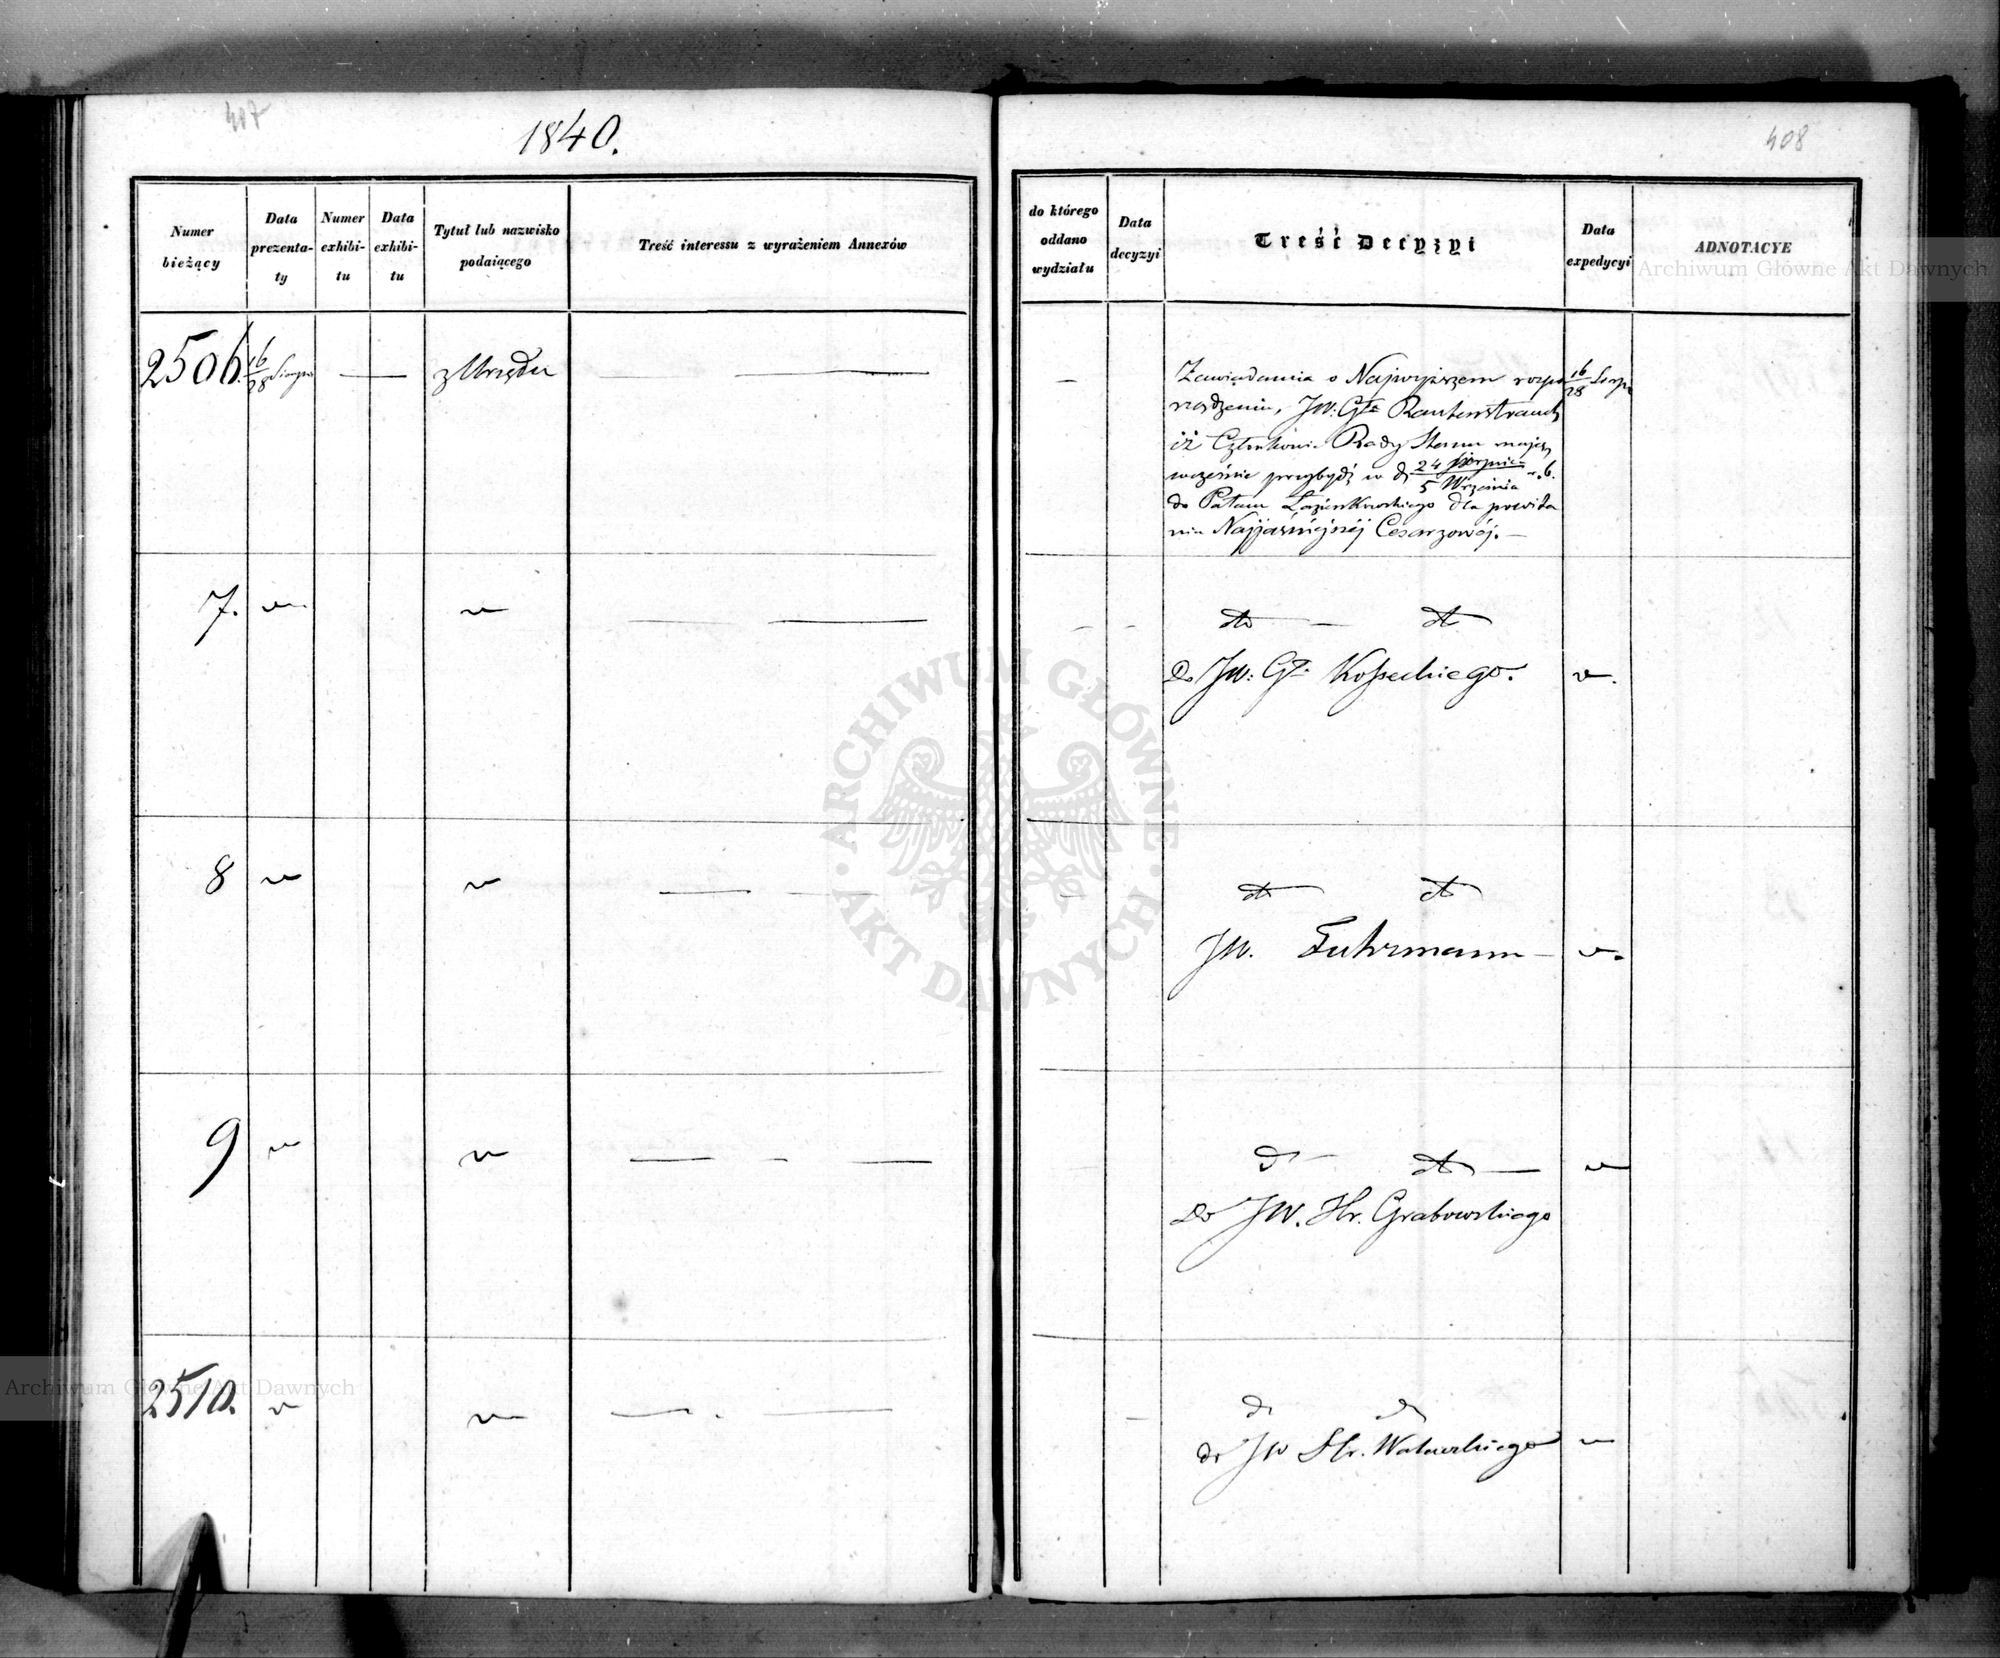 407
1840.
Numer bieżący
Data prezenta-ty
Numer exhibi-tu
Data exhibi-tu
Tytuł lub nazwisko podaiącego
Treść interessu z wyrażeniem Annexów
2506. 16/28 Sierpn z Urzędu
7.
8
9
2510.
408
do którego oddano wydziału
Data decyzyi
Treść Decyzyi
Data expedycyi
ADNOTACYE
Zawiadamia o Najwyższem rozpo 16/28 Sierpn
rządzeniu, JW. Gła Rautenstrauch
iż Członkowie Rady Stanu mają
wcześnie przybydź w d. 24 Sierpnia/5 Września r.b.
do Pałacu Łazienkowskiego dla powita
nia Najjaśniejszéj Cesarzowéj.
dto dto
Do JW: Gła Kosseckiego.
dto dto
JW. Fuhrmann
dto
Do JW. Hr. Grabowskiego
do JW Hr. Walewskiego
ARCHIWUM GŁÓWNE AKT DAWNYCH
Archiwum Główne Akt Dawnych
Archiwum Główne Akt Dawnych